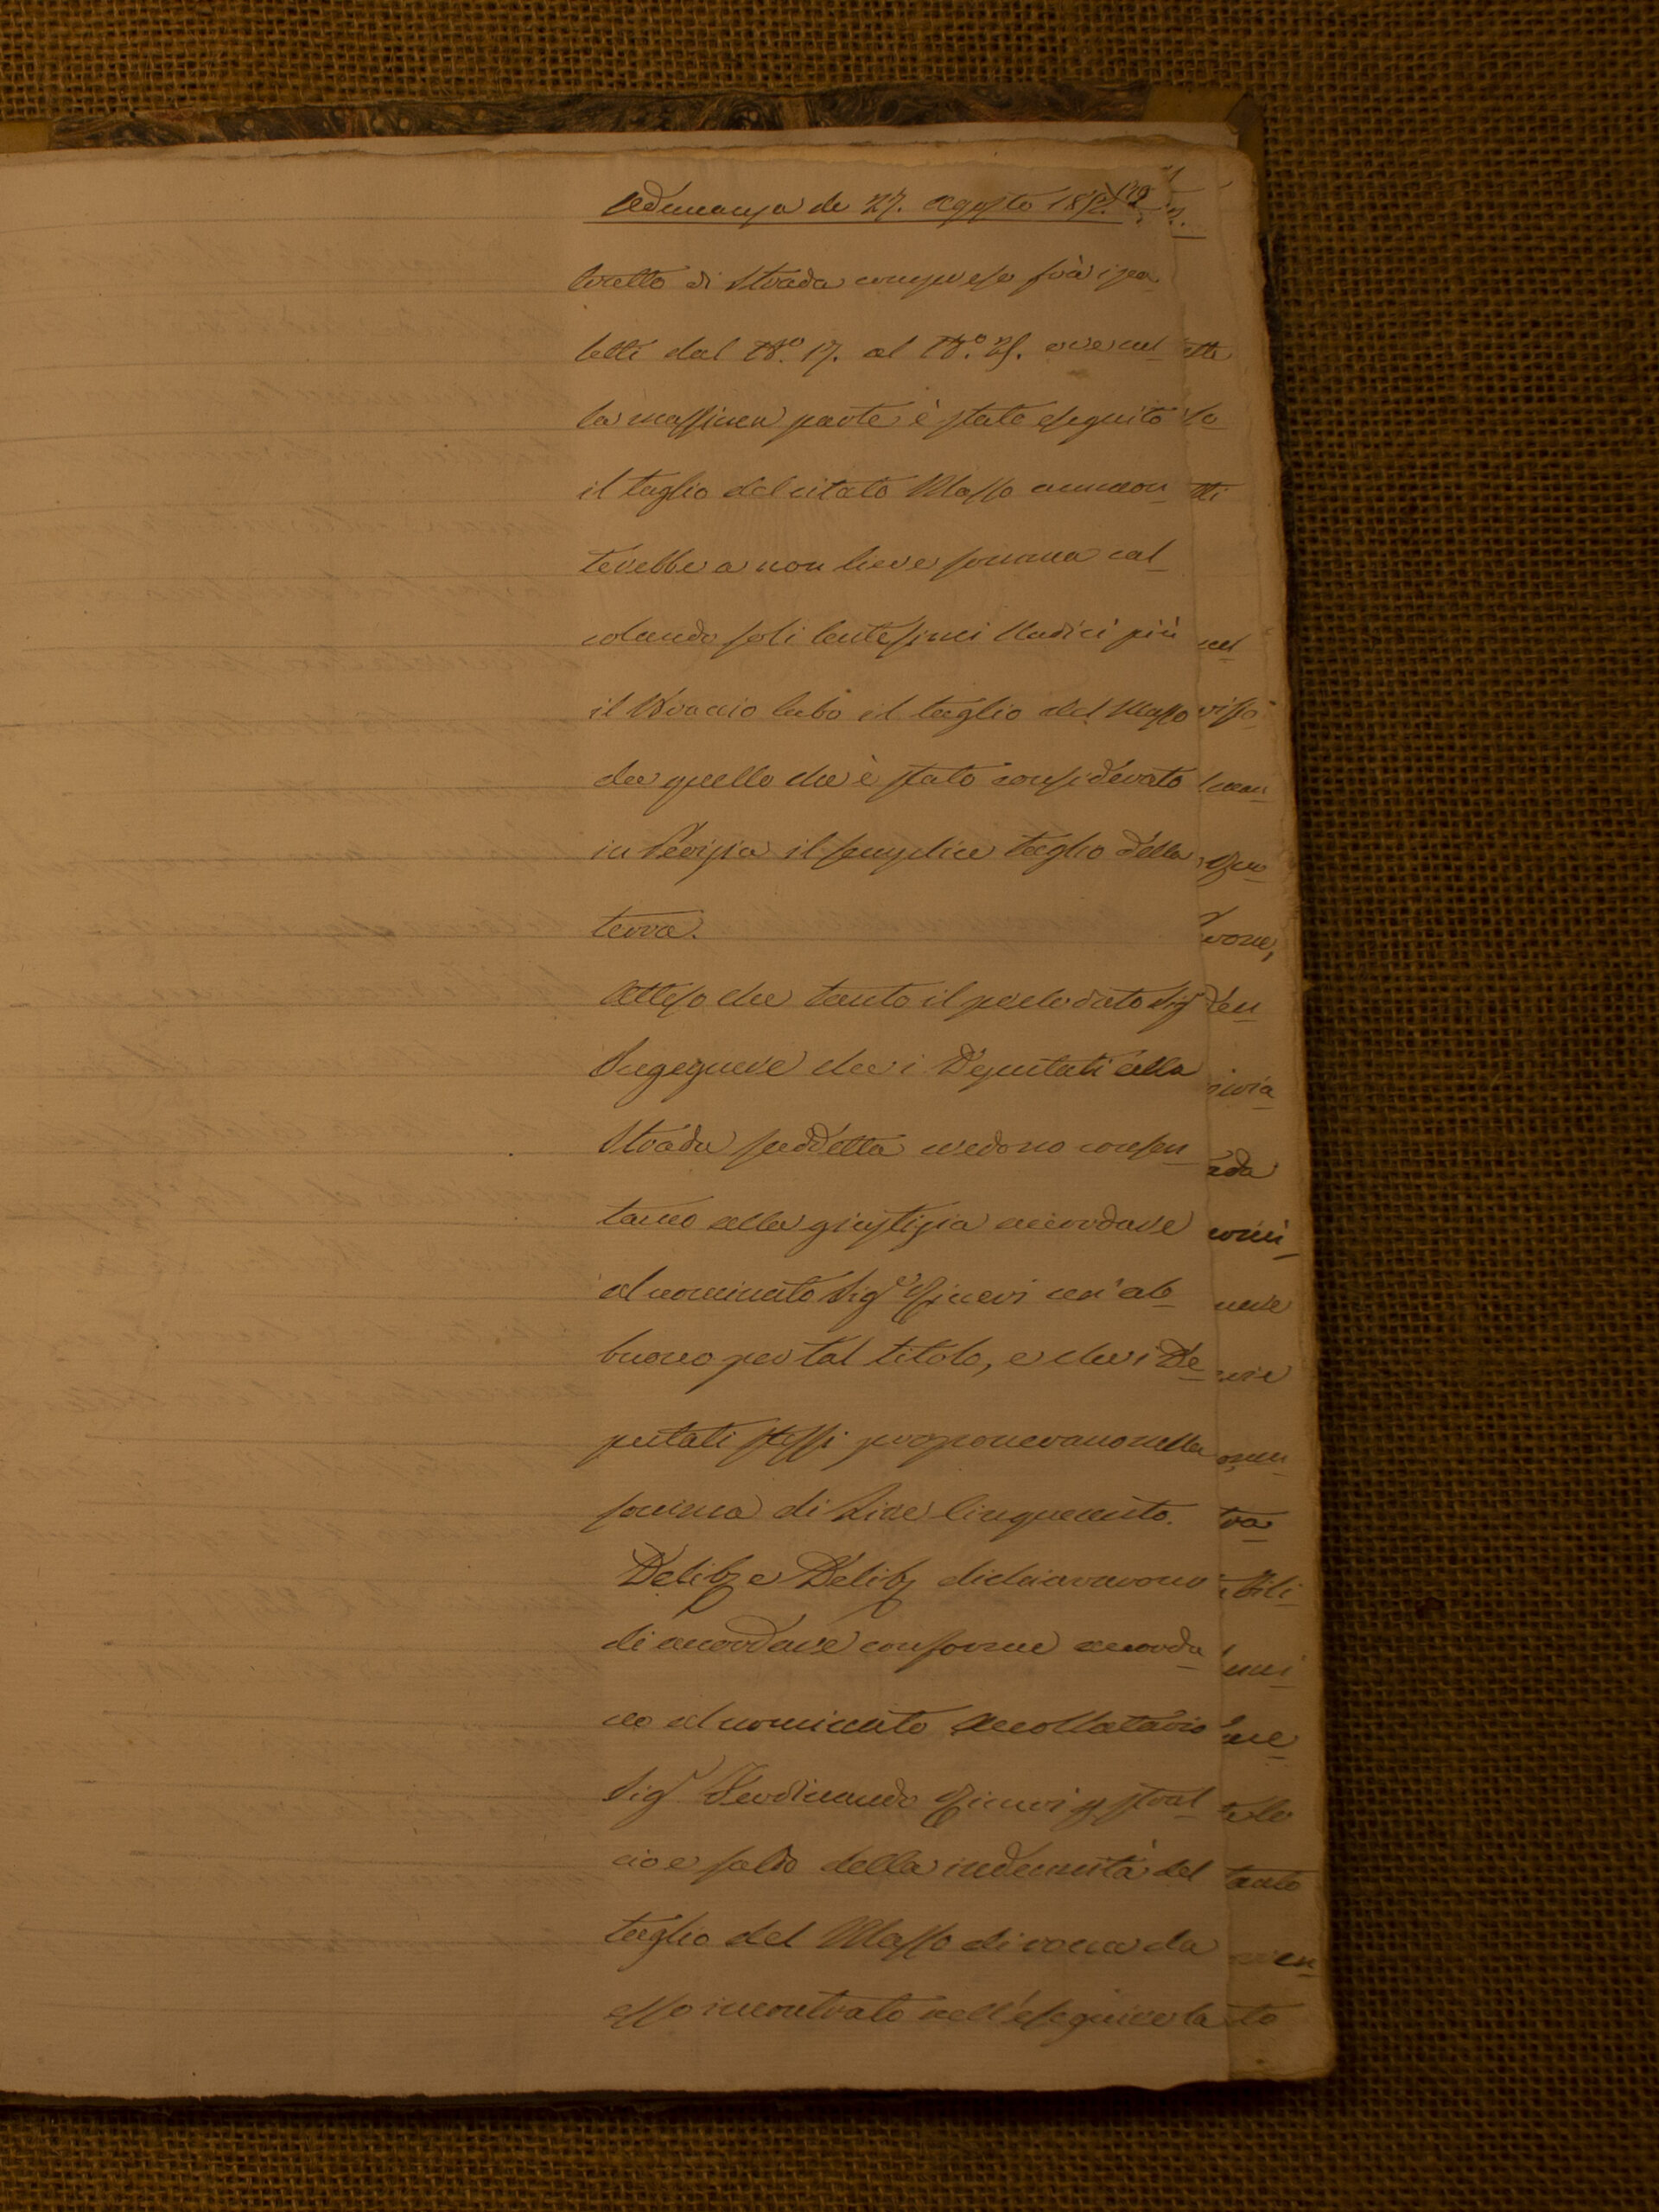 Adunanza de 27. Agosto 185
tratto di Strada compreso frà i pa
letti dal N.º 17. al N.º 25. ove nel
la massima parte è stato eseguito
il taglio del citato Masso ammon
terebbe a non lieve somma cal
colando soli Centesimi Undici più
il Braccio Cubo il taglio del Masso
da quello che è stato considerato
in Perizia il semplice taglio della
terra.
Atteso che tanto il prelodato Sig.r
Ingegnere che i Deputati alla
Strada suddetta credono consen
taneo alla giustizia accordare
al nominato Sig.r Ginevi un' ab
buono per tal titolo, e che i De
putati stessi proponevano nella
somma di Lire Cinquecento.
Delib.e Delib. dichiararono
di accordare conforme accorda
no al nominato Accollatario
Sig.r Ferdinando Ginevi p stral
cio e saldo della indennità del
taglio del Masso di rocca da
esso incontrato nell'eseguire la